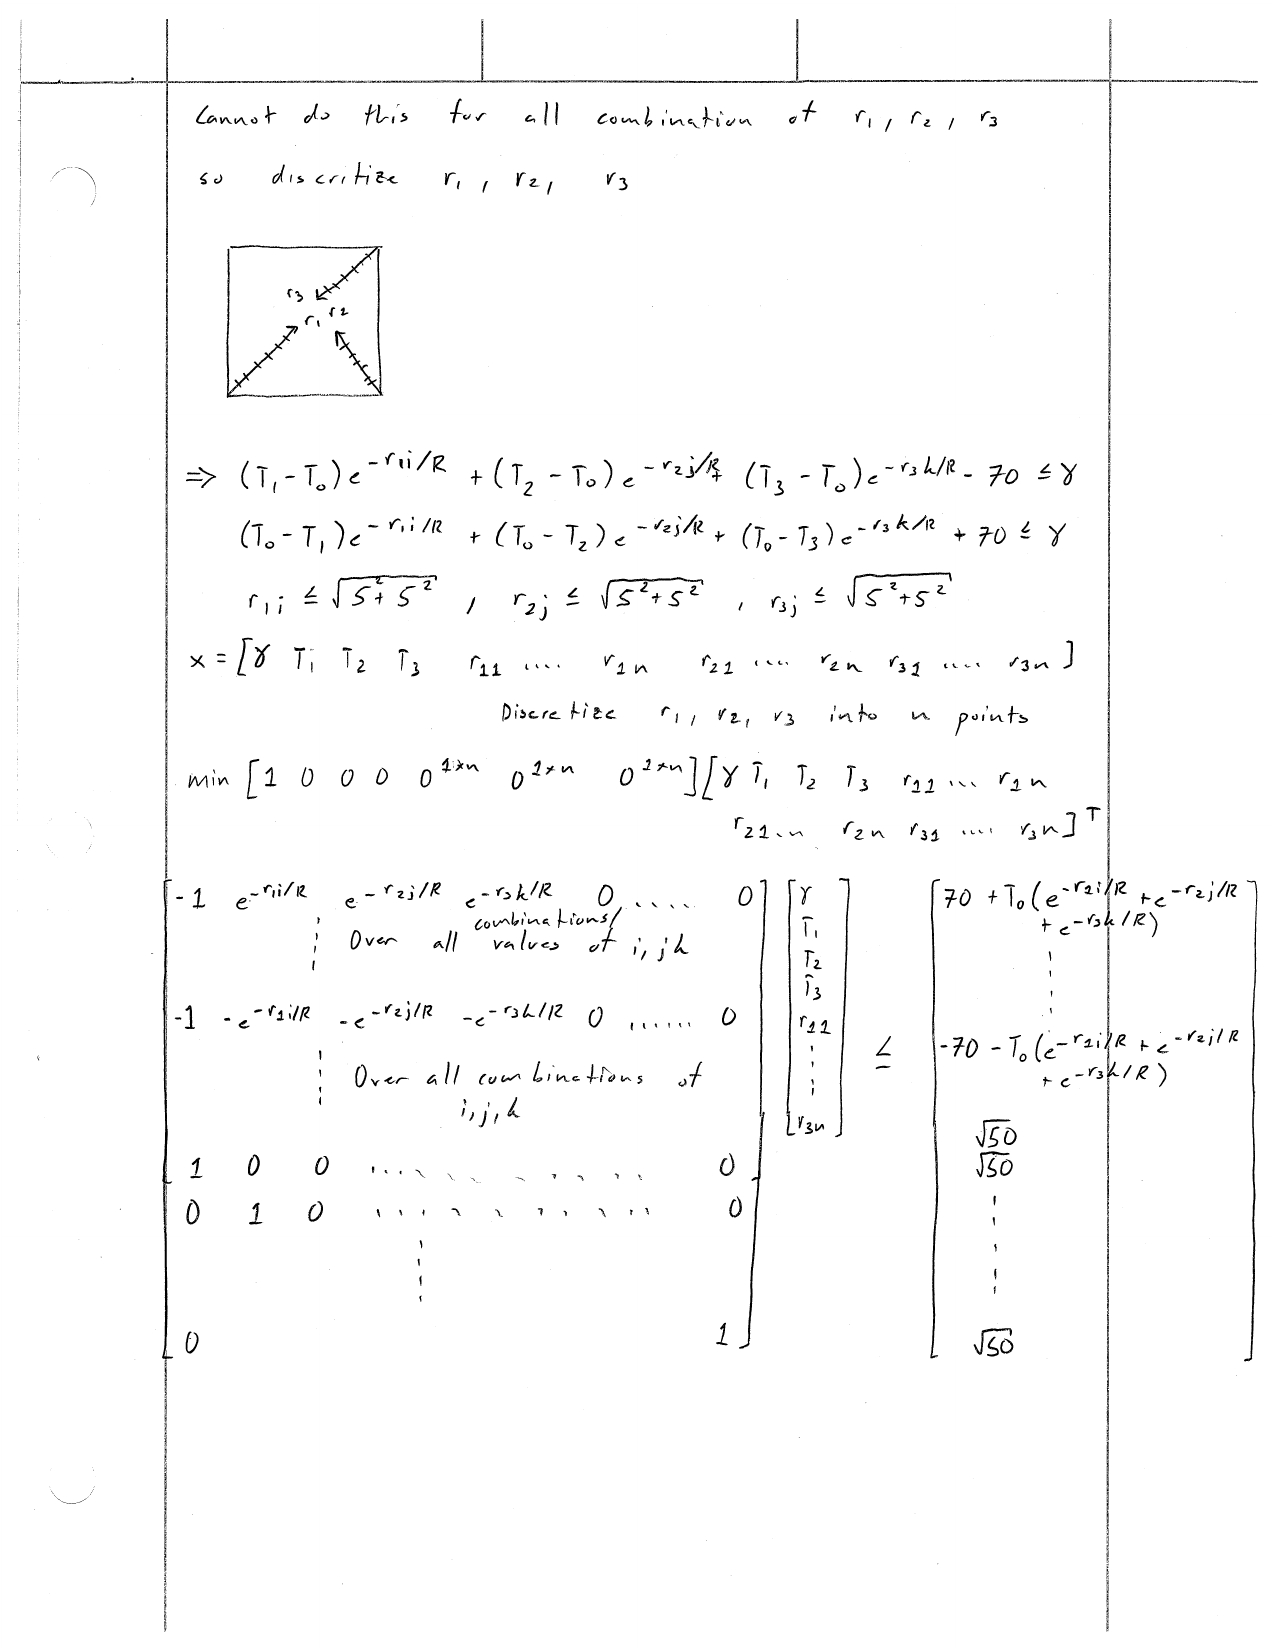 Cannot do this for all combination of r₁, r₂, r₃
so discritize r₁, r₂, r₃
r₃
r₁ r₂
⇒ (T₁-T₀)e^{-r₁i/R} + (T₂-T₀)e^{-r₂j/R} + (T₃-T₀)e^{-r₃k/R} - 70 ≤ γ
(T₀-T₁)e^{-r₁i/R} + (T₀-T₂)e^{-r₂j/R} + (T₀-T₃)e^{-r₃k/R} + 70 ≤ γ
r₁i ≤ √(5²+5²), r₂j ≤ √(5²+5²), r₃j ≤ √(5²+5²)
x = [γ T₁ T₂ T₃ r₁₁ .... r₁n r₂₁ .... r₂n r₃₁ .... r₃n]
Discretize r₁, r₂, r₃ into n points
min [1 0 0 0 0^{1×n} 0^{1×n} 0^{1×n}][γ T₁ T₂ T₃ r₁₁ ... r₁n
r₂₁... r₂n r₃₁ .... r₃n]^T
-1 e^{-r₁i/R} e^{-r₂j/R} e^{-r₃k/R} 0 ..... 0
combinations/
Over all values of i, j k
-1 -e^{-r₁i/R} -e^{-r₂j/R} -e^{-r₃k/R} 0 ...... 0
Over all combinations of
i, j, k
1 0 0 .......... 0
0 1 0 .......... 0
0 1
γ
T₁
T₂
T₃
r₁₁
r₃n
≤
70 + T₀(e^{-r₁i/R} + e^{-r₂j/R}
+ e^{-r₃k/R})
-70 - T₀(e^{-r₁i/R} + e^{-r₂j/R}
+ e^{-r₃k/R})
√50
√50
√50